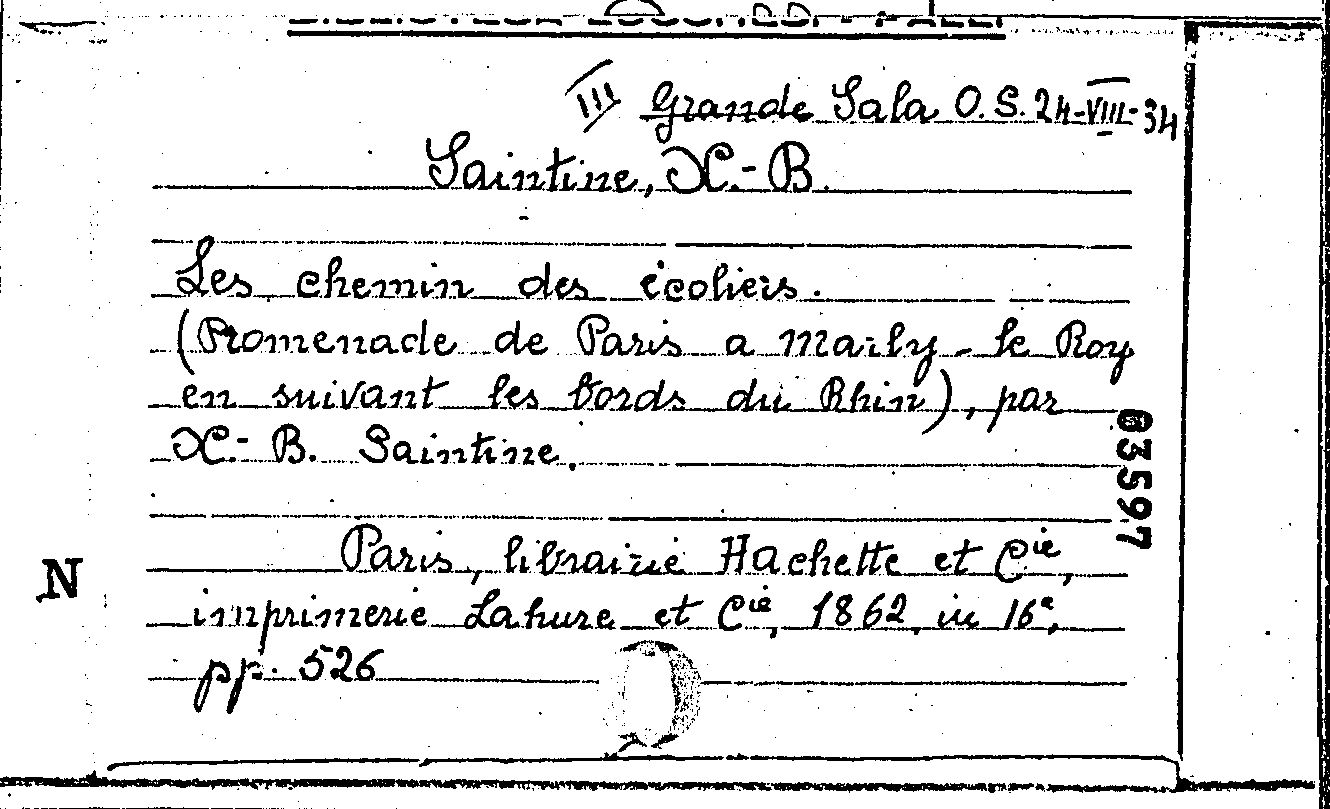 III Grande Sala O. S. 24-VIII-34
Saintine, X.-B.
Les chemin des écoliers.
(Promenade de Paris a Marly-le Roy
en suivant les bords du Rhin), par
X.-B. Saintine.
03597
Paris, librairie Hachette et Cie,
N
imprimerie Lahure et Cie, 1862, in 16°,
pp. 526